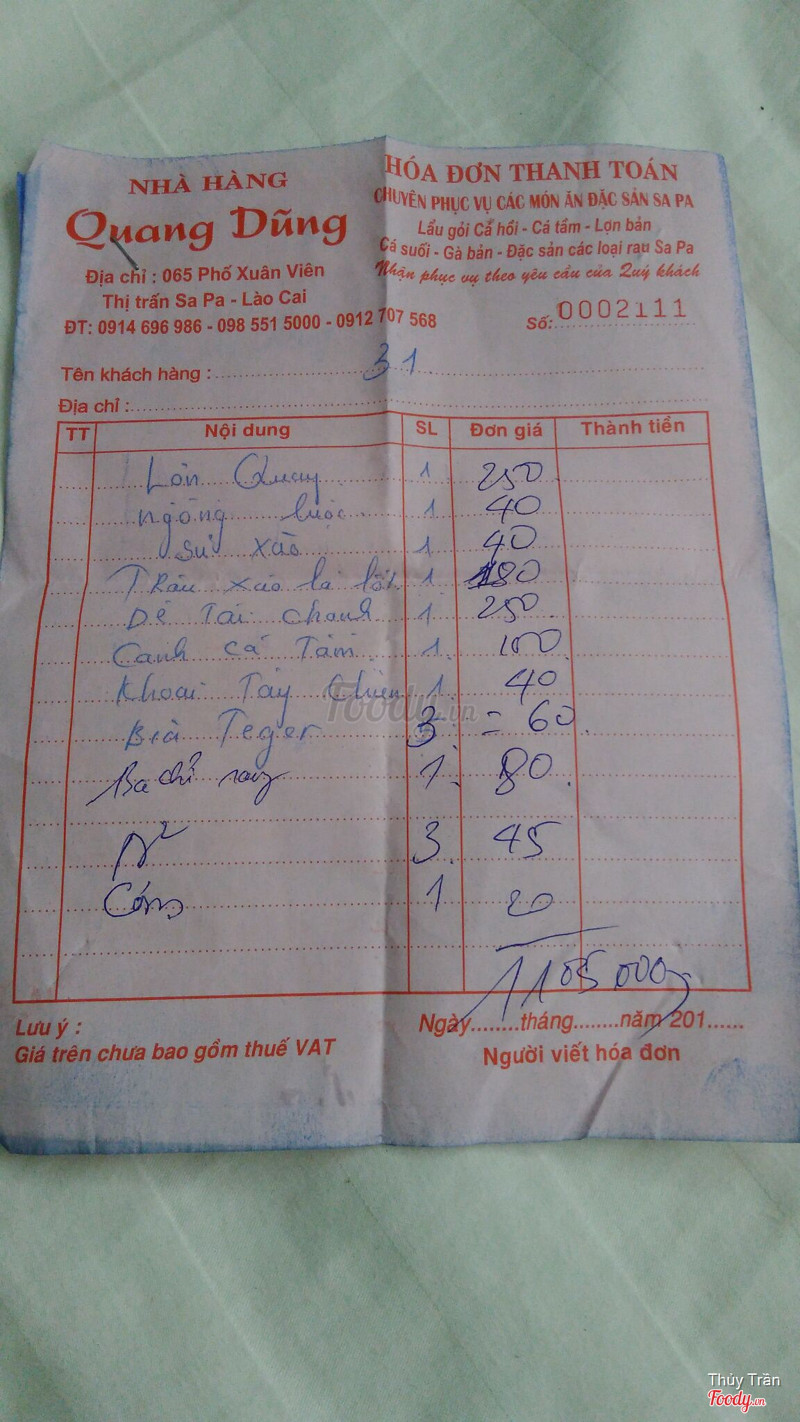 NHÀ HÀNG
Quang Dũng
Địa chỉ : 065 Phố Xuân Viên
Thị trấn Sa Pa - Lào Cai
ĐT: 0914 696 986 - 098 551 5000 - 0912 707 568
HÓA ĐƠN THANH TOÁN
CHUYÊN PHỤC VỤ CÁC MÓN ĂN ĐẶC SẢN SA PA
Lẩu gỏi Cá hồi - Cá tầm - Lợn bản
Cá suối - Gà bản - Đặc sản các loại rau Sa Pa
Nhận phục vụ theo yêu cầu của Quý khách
Số: 0002111
Tên khách hàng : 31
Địa chỉ :
TT Nội dung SL Đơn giá Thành tiền
Lợn Quay 1 250
ngồng luộc 1 40
su xào 1 40
Trâu xào lá lốt 1 180
Dê Tái chanh 1 250
Canh cá Tầm 1 100
Khoai Tây Chiên 1 40
Bia Teger 3 = 60
Ba chỉ rang 1 80
N² 3 45
Cơm 1 20
1105000
Lưu ý :
Giá trên chưa bao gồm thuế VAT
Ngày........tháng........năm 201......
Người viết hóa đơn
Foody.vn
Thúy Trần
Foody.vn